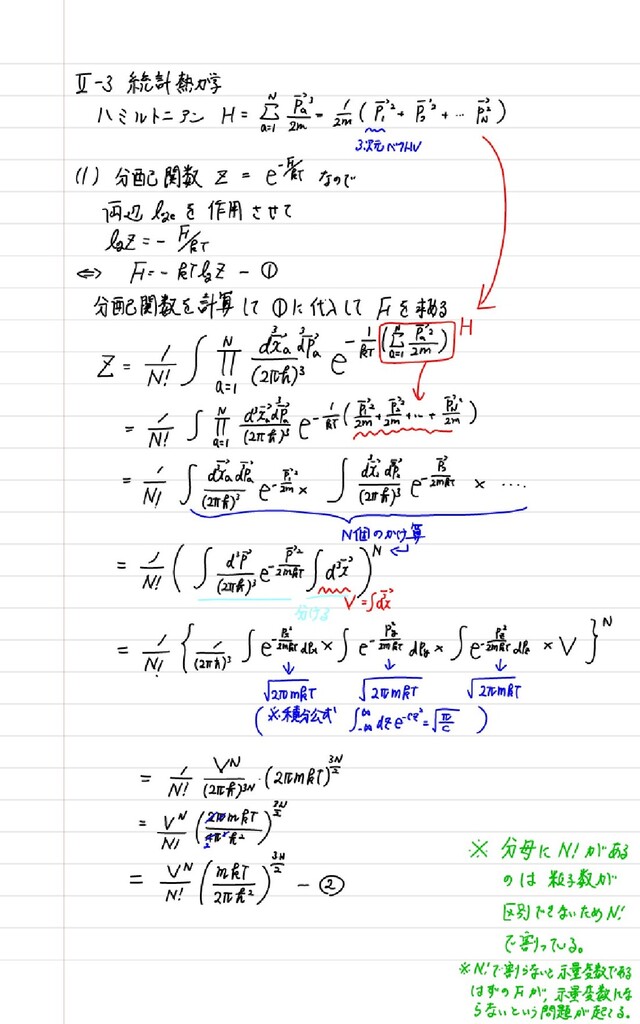 II-3 統計熱力学
ハミルトニアン H = Σ_{a=1}^{N} \vec{p}_a^2/2m = 1/2m (\vec{p}_1^2 + \vec{p}_2^2 + … \vec{p}_N^2)
3次元ベクトル
(1) 分配関数 Z = e^{-F/kT} なので
両辺 log_e を作用させて
log Z = - F/kT
⇔ F = - kT log Z - ①
分配関数を計算して ①に代入して Fを求める
Z = 1/N! ∫ Π_{a=1}^{N} d^3\vec{x}_a d^3\vec{p}_a/(2πħ)^3 e^{-1/kT (Σ_{a=1}^{N} \vec{p}_a^2/2m)} H
= 1/N! ∫ Π_{a=1}^{N} d^3\vec{x}_a d^3\vec{p}_a/(2πħ)^3 e^{-1/kT (\vec{p}_1^2/2m + \vec{p}_2^2/2m + … + \vec{p}_N^2/2m)}
= 1/N! ∫ d^3\vec{x}_a d\vec{p}_a/(2πħ)^3 e^{-\vec{p}_1^2/2m} × ∫ d^3\vec{x}_2 d\vec{p}_2/(2πħ)^3 e^{-\vec{p}_2^2/2mkT} × ….
N個のかけ算
= 1/N! ( ∫ d^3\vec{p}/(2πħ)^3 e^{-\vec{p}^2/2mkT} ∫ d^3\vec{x} )^N
分ける V = ∫d\vec{x}
= 1/N! { 1/(2πħ)^3 ∫ e^{-p_x^2/2mkT} dp_x × ∫ e^{-p_y^2/2mkT} dp_y × ∫ e^{-p_z^2/2mkT} dp_z × V }^N
√2πmkT √2πmkT √2πmkT
(※積分公式 ∫_{-∞}^{∞} dz e^{-cz^2} = √π/c )
= 1/N! V^N/(2πħ)^{3N} · (2πmkT)^{3N/2}
= V^N/N! (2πmkT/4π^2ħ^2)^{3N/2}
= V^N/N! (mkT/2πħ^2)^{3N/2} - ②
※ 分母に N! がある
のは 粒子数が
区別できないため N!
で割っている。
※N!で割らないと示量変数である
はずのFが、示量変数にな
らないという問題が起こる。